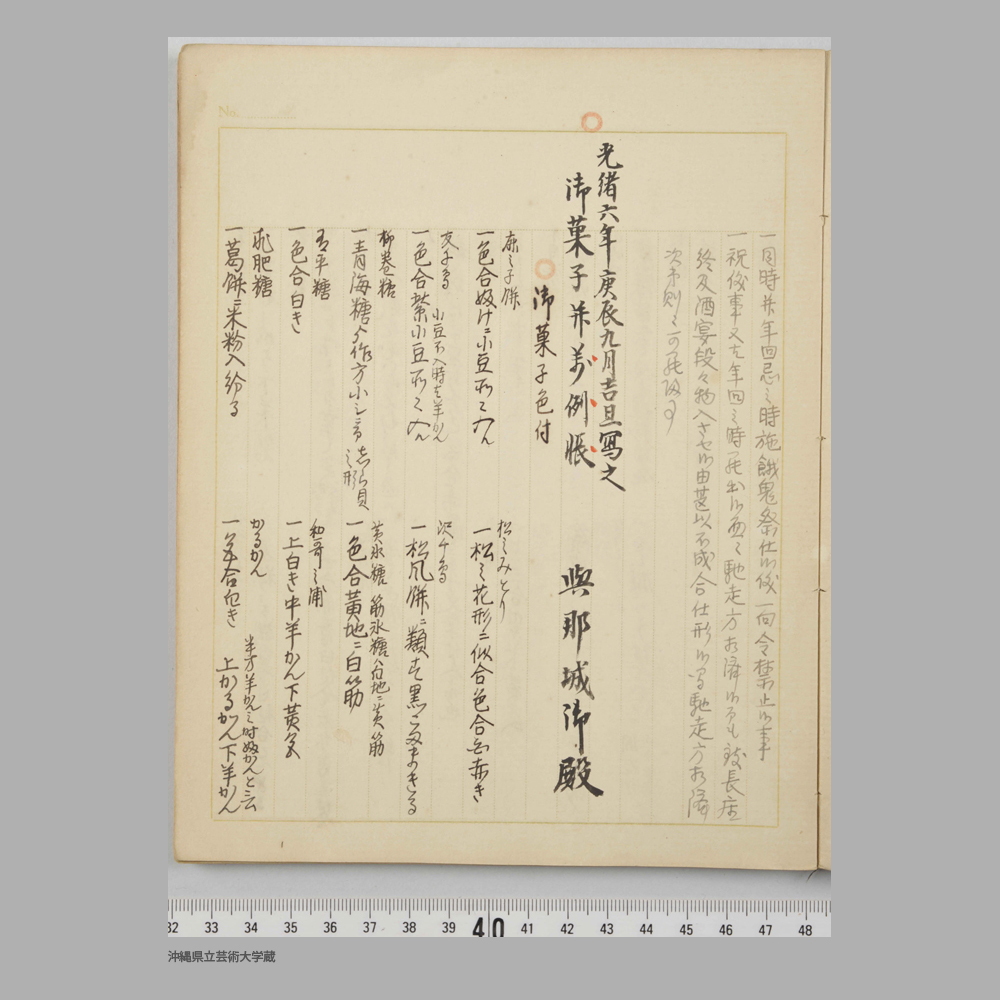 一同時并年回忌之時施餓鬼祭仕候儀一向令禁止候事
一祝儀事又は年回之時罷出候面々馳走方相済候ても致長座
終及酒宴段々物入させ候由甚以不成合仕形候間馳走方相済
次第則々可罷帰事
光緒六年庚辰九月吉旦写之
御菓子并万例帳
與那城御殿
御菓子色付
一色合
小豆
友千鳥
小豆不入時は羊かん
一色合紫小豆
柳巻糖
一青海糖
作方小
貝之形
有平糖
一色合白き
求肥糖
一葛餅ニ米粉入
松之みとり
一松之花形ニ似合色合白赤き
沢千鳥
一松風餅ニ類す黒こまあまきる
黄氷糖 筋氷糖は白地ニ黄筋
一色合黄地ニ白筋
和哥之浦
一上白き中羊かん下黄色
かるかん
一色合白き
半方羊かん之時
上かるかん下羊かん
No.
32 33 34 35 36 37 38 39 40 41 42 43 44 45 46 47 48
沖縄県立芸術大学蔵